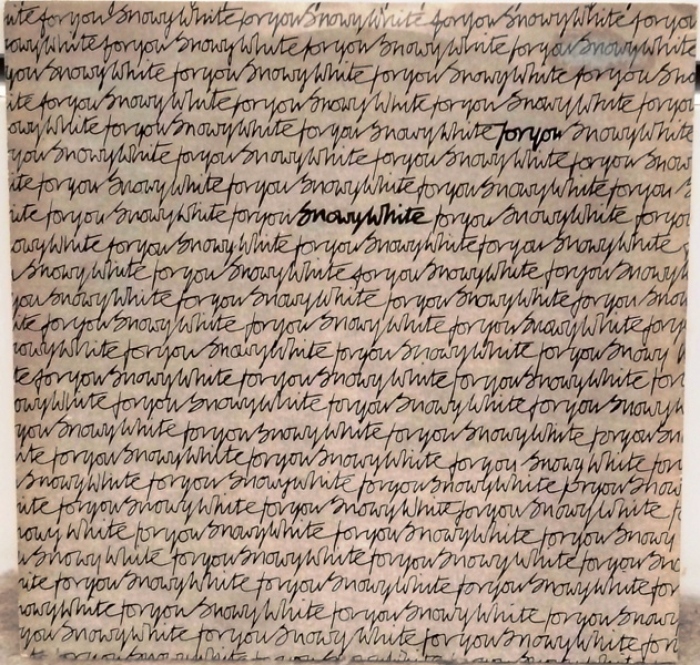 ite foryou SnowyWhite foryou SnowyWhite foryou SnowyWhite foryou
owyWhite foryou SnowyWhite foryou SnowyWhite foryou SnowyWhite
you SnowyWhite foryou SnowyWhite foryou SnowyWhite foryou Sno
ite foryou SnowyWhite foryou SnowyWhite foryou SnowyWhite foryou
owyWhite foryou SnowyWhite foryou SnowyWhite foryou SnowyWhite
you SnowyWhite foryou SnowyWhite foryou SnowyWhite foryou Snow
ite foryou SnowyWhite foryou SnowyWhite foryou SnowyWhite foryou
ite foryou SnowyWhite foryou SnowyWhite foryou SnowyWhite foryou
owyWhite foryou SnowyWhite foryou SnowyWhite foryou SnowyWhite
SnowyWhite foryou SnowyWhite foryou SnowyWhite foryou SnowyWh
you SnowyWhite foryou SnowyWhite foryou SnowyWhite foryou Snow
ite foryou SnowyWhite foryou SnowyWhite foryou SnowyWhite fory
owyWhite foryou SnowyWhite foryou SnowyWhite foryou Snowy W
te foryou SnowyWhite foryou SnowyWhite foryou SnowyWhite for
owyWhite foryou SnowyWhite foryou SnowyWhite foryou Snowy
you SnowyWhite foryou SnowyWhite foryou SnowyWhite foryou Sn
ite foryou SnowyWhite foryou SnowyWhite foryou SnowyWhite for
SnowyWhite foryou SnowyWhite foryou SnowyWhite foryou Snow
ite foryou SnowyWhite foryou SnowyWhite foryou SnowyWhite f
owyWhite foryou SnowyWhite foryou SnowyWhite foryou Snowy
SnowyWhite foryou SnowyWhite foryou SnowyWhite foryou Sno
ite foryou SnowyWhite foryou SnowyWhite foryou SnowyWhite for
owyWhite foryou SnowyWhite foryou SnowyWhite foryou Snowy
you SnowyWhite foryou SnowyWhite foryou SnowyWhite for